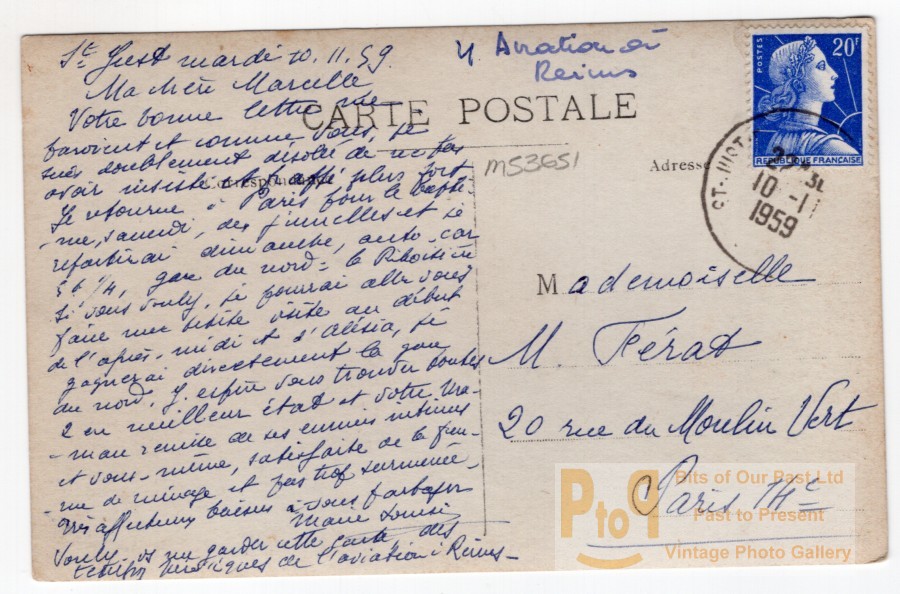 St Just mardi 10.11.59
Ma chère Marcelle
Votre bonne lettre me
parvient et comme vous, je
suis doublement désolée de ne pas
avoir insisté et frappé plus fort
Je retourne à Paris pour le baptê-
-me, samedi, des jumelles et je
repartirai dimanche, auto-car
5h 1/4, gare du nord =
Si vous voulez, je pourrai aller vous
faire une petite visite au début
de l'après-midi et d'Alésia, je
gagnerai directement la gare
du nord. J'espère vous trouver toutes
2 en meilleur état et votre Ma-
-man remise de ses ennuis
et vous-même, satisfaite de la fem-
-me de ménage et pas trop surmenée
Très affectueux baisers à vous partager
Marie Louise
Voulez-vs me garder cette carte des
de l'aviation : Reims -
Aviation à
Reims
CARTE POSTALE
Correspondance
MS3651
Adresse
POSTES
20F
REPUBLIQUE FRANÇAISE
ST-JUST
10-11
1959
Mademoiselle
M. Férat
20 rue du Moulin Vert
Paris 14e
PtoP
Bits of Our Past Ltd
Past to Present
Vintage Photo Gallery